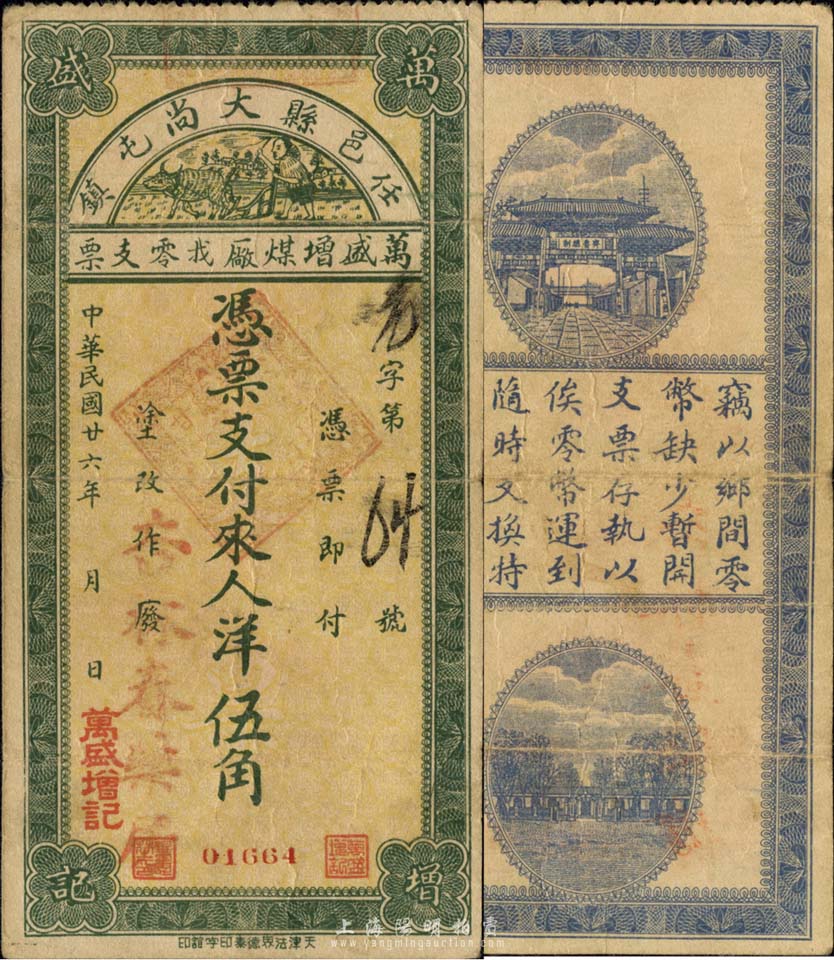 萬盛
增記
任邑縣大尚屯鎮
萬盛增煤廠找零支票
字第64號
憑票即付
憑票支付來人洋伍角
塗改作廢
中華民國廿六年 月 日
萬盛增記
01664
天津法界德泰印字館印
竊以鄉間零
幣缺少暫開
支票存執以
俟零幣運到
隨時兌換特
上海陽明拍賣
www.yangmingauction.com